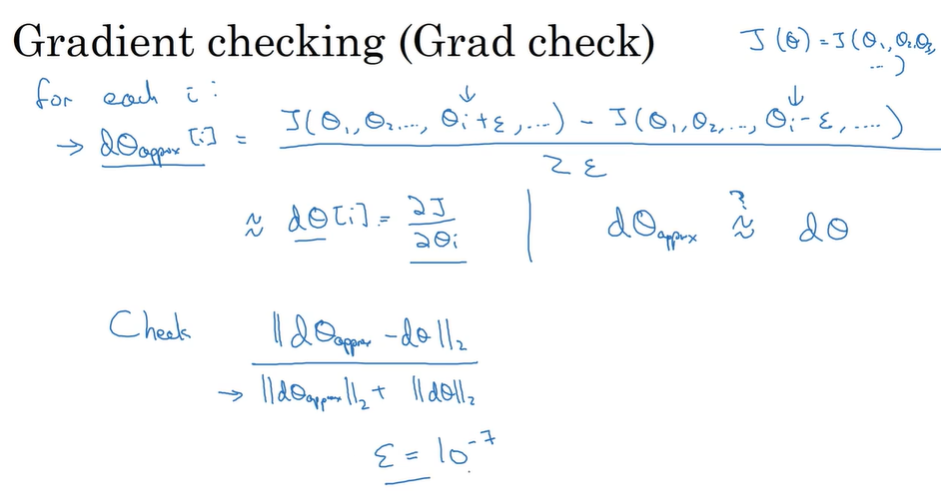 Gradient checking (Grad check)
J(θ) = J(θ₁, θ₂, θ₃, ...)
for each i:
→ dθapprox[i] = J(θ₁, θ₂, ..., θᵢ+ε, ...) - J(θ₁, θ₂, ..., θᵢ-ε, ....)
2ε
≈ dθ[i] = ∂J/∂θᵢ | dθapprox ≈? dθ
Check ||dθapprox - dθ||₂
→ ||dθapprox||₂ + ||dθ||₂
ε = 10⁻⁷